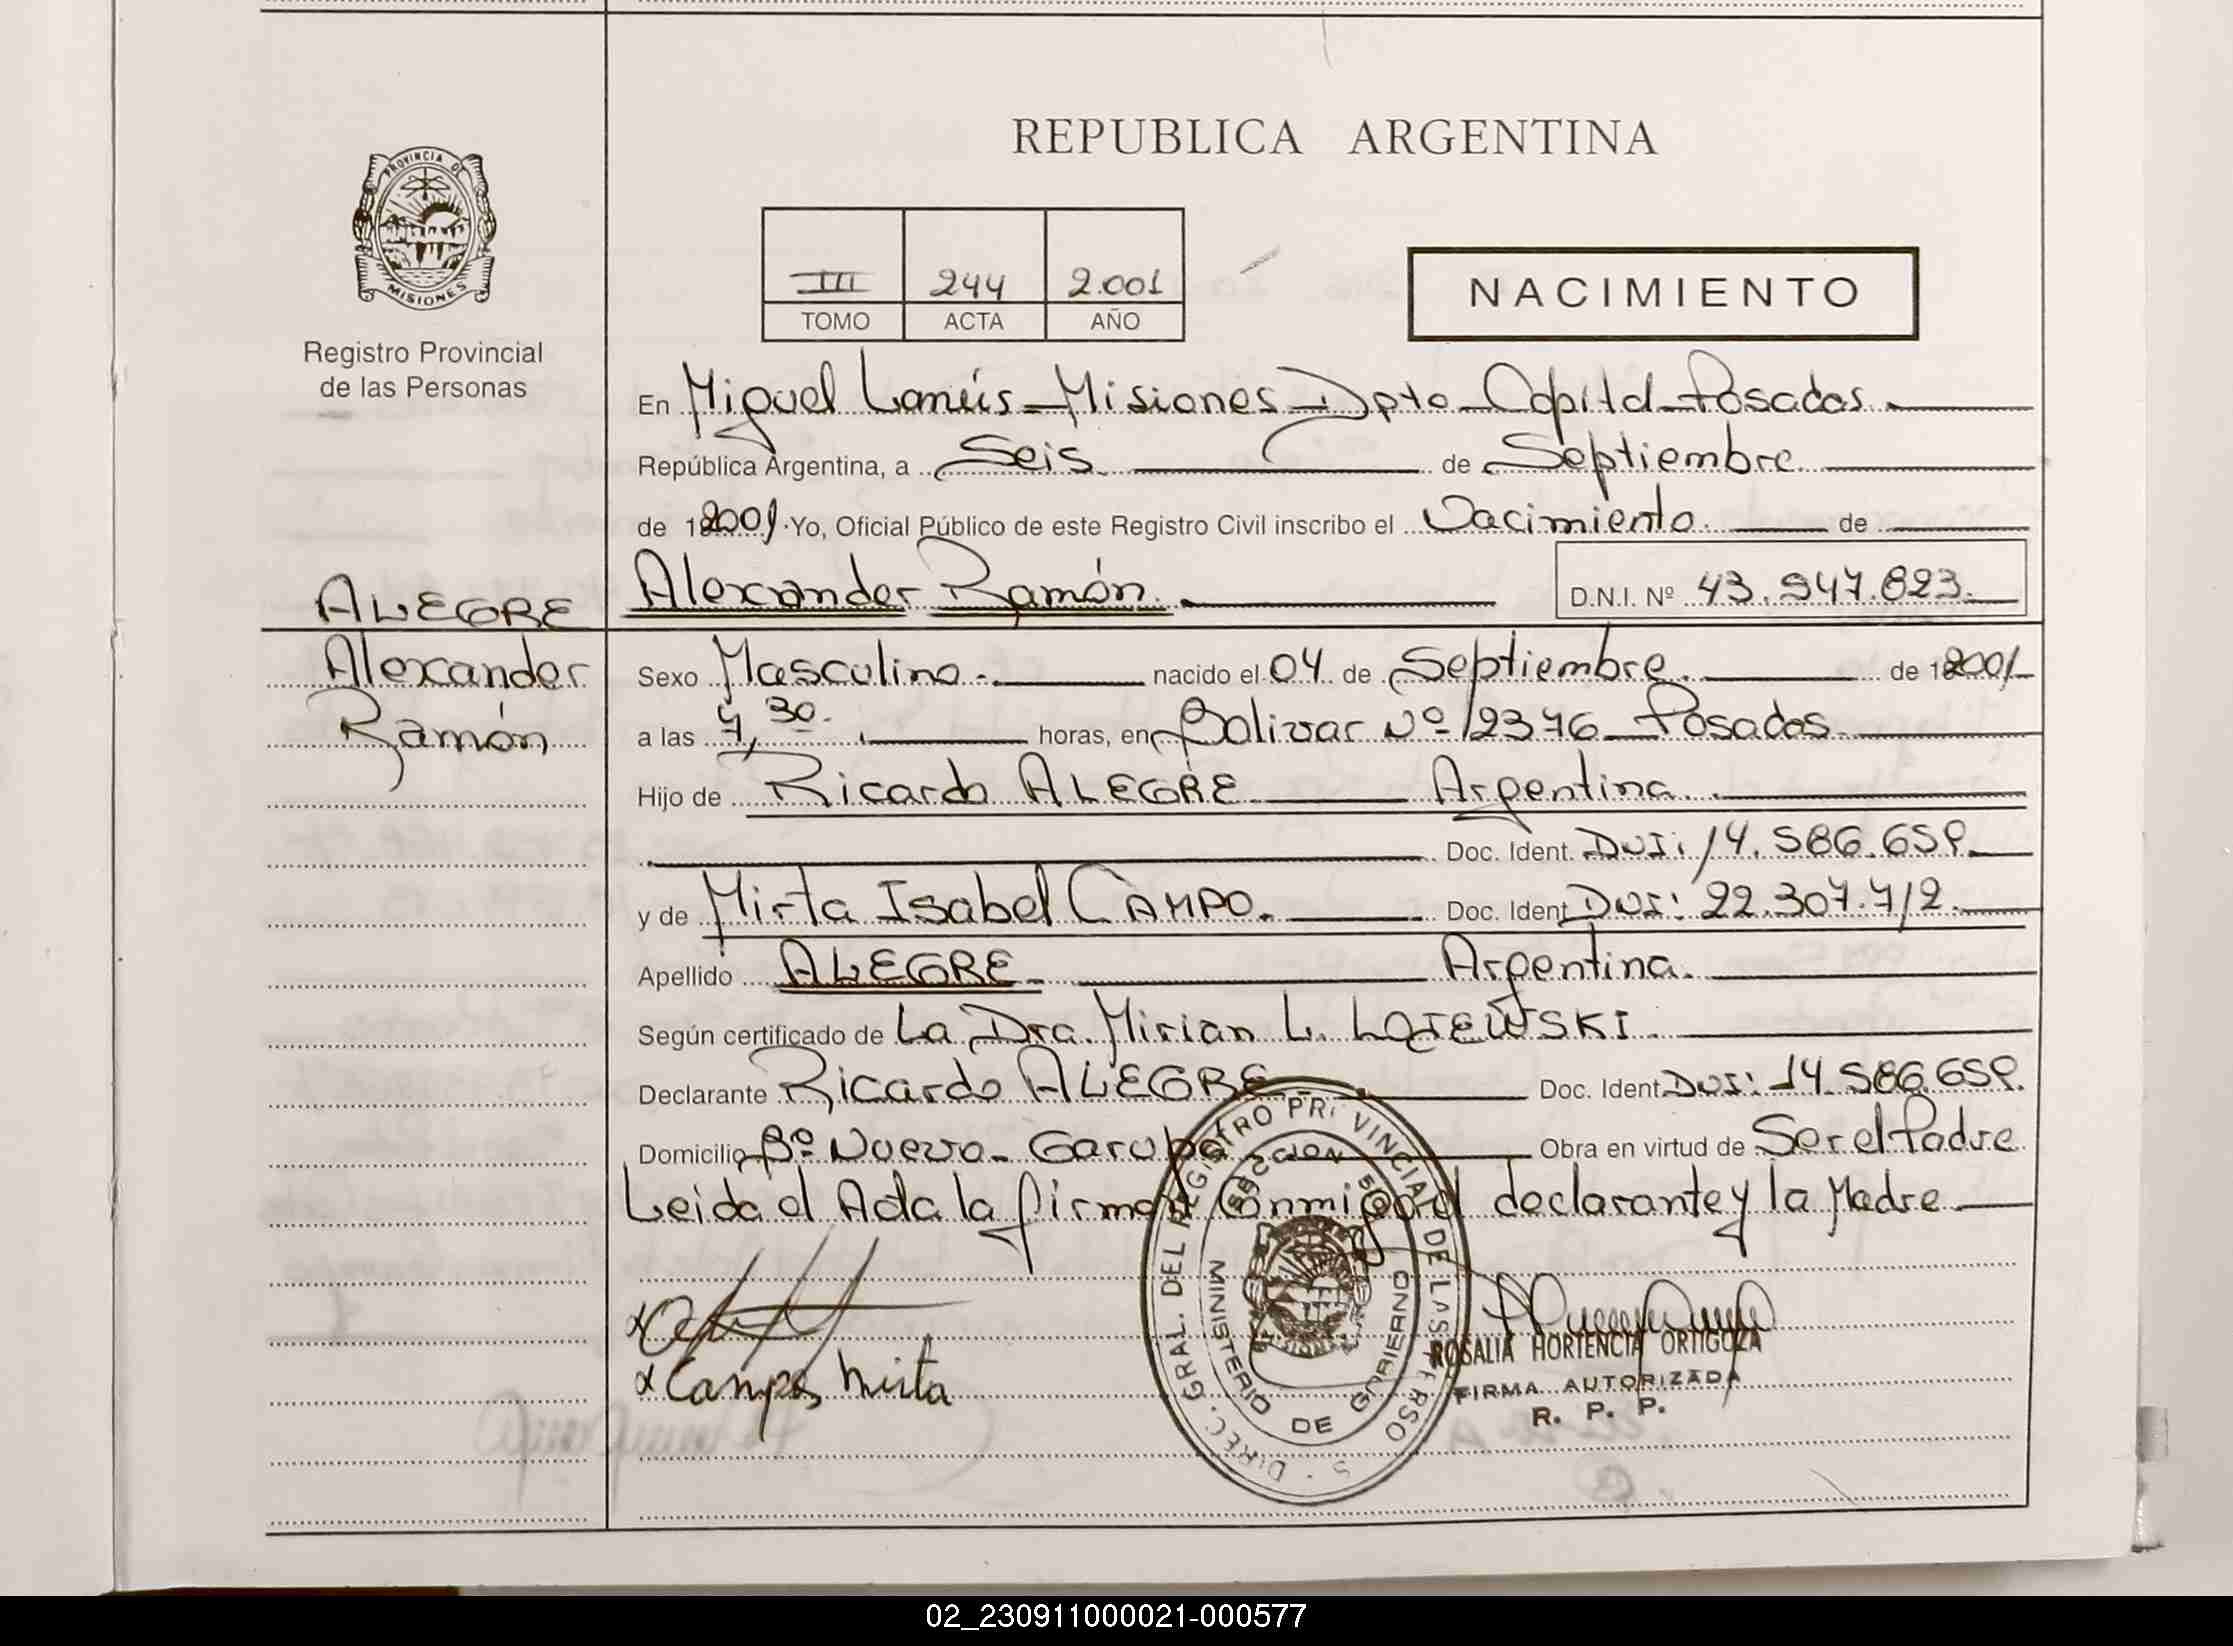 REPUBLICA ARGENTINA
PROVINCIA DE
MISIONES
Registro Provincial
de las Personas
III 244 2.001
TOMO ACTA AÑO
NACIMIENTO
En Miguel Lanús - Misiones - Dpto - Capital - Posadas.
República Argentina, a Seis de Septiembre
de 2001 Yo, Oficial Público de este Registro Civil inscribo el Nacimiento de
Alexander Ramón. D.N.I. Nº 43.947.823.
ALEGRE
Alexander
Ramón
Sexo Masculino.- nacido el 04 de Septiembre. de 2001
a las 7,30. horas, en Bolivar Nº 2376 - Posadas
Hijo de Ricardo ALEGRE Argentina.
Doc. Ident. DNI: 14.586.659.
y de Mirta Isabel CAMPO. Doc. Ident. DNI: 22.307.712.
Apellido ALEGRE. Argentina.
Según certificado de La Dra. Mirian L. LOJEWSKI.
Declarante Ricardo ALEGRE Doc. Ident. DNI: 14.586.659.
Domicilio Bº Nuevo - Garupa Obra en virtud de Ser el Padre
Leida el Acta la firman conmigo el declarante y la Madre
Campo, Mirta
DIREC. GRAL. DEL REGISTRO PROVINCIAL DE LAS PERSONAS
MINISTERIO DE GOBIERNO
MISIONES
ROSALIA HORTENCIA ORTIGOZA
FIRMA AUTORIZADA
R. P. P.
02_230911000021-000577